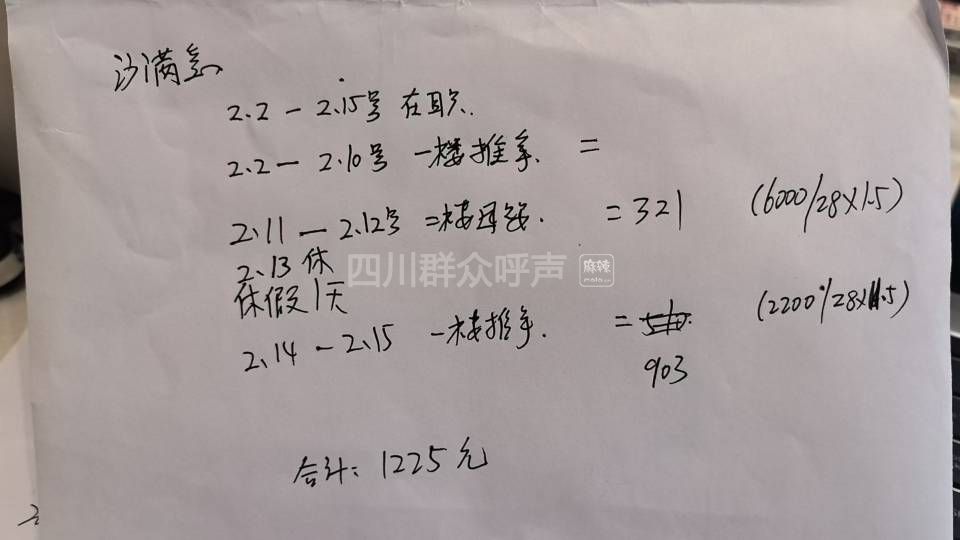 沙满金
2.2 - 2.15号 在职.
2.2 - 2.10号 一楼推拿. =
2.11 - 2.12号 二楼 . = 321 (6000/28×1.5)
2.13 休
休假1天
2.14 - 2.15 一楼推拿. = (2200/28×11.5)
903
合计: 1225元
四川群众呼声 麻辣 mala.cn